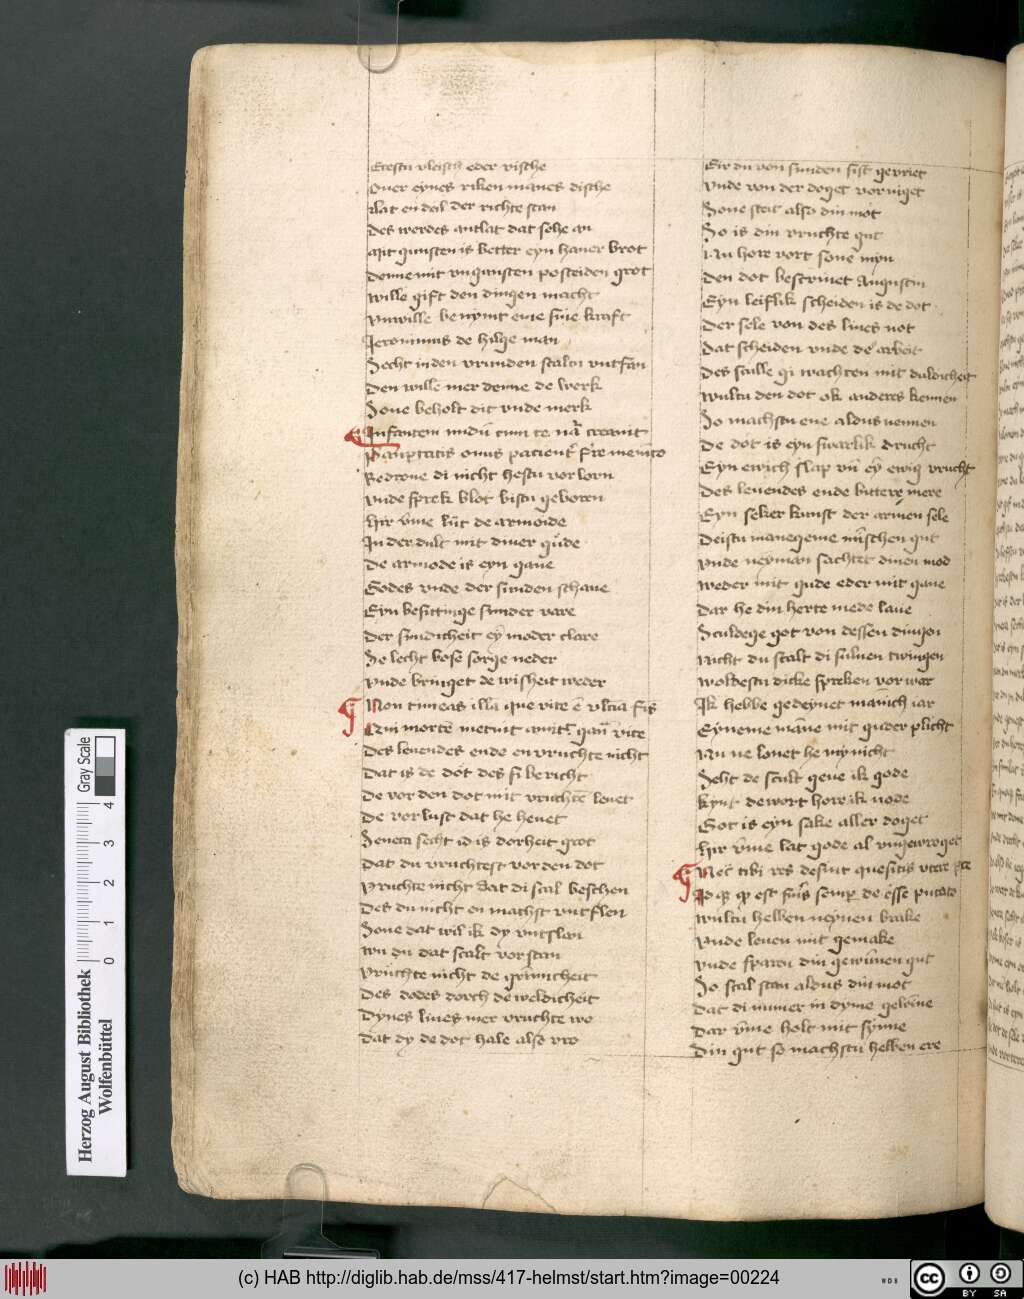 Etestu vleisch eder vische
Ouer eynes riken mānes dische
Lat en deil der richte stan
Des werdes antlat dat sehe an
Mit gunsten is better eyn hauer brot
Denne mit vngunsten posteiden grot
Wille gift den dingen macht
Vnwille benymt eme sine kraft
Jeronimus de hilge man
Secht in den vrunden scaltu vntfan
Den wille mer denne de werk
Sone beholt dit vnde merk
Infantem nudū cum te natͣ creauit
Paupertatis onus pacient' ferre memēto
Redeone di nicht hestu vorlorn
Vnde sprek blot bistu geboren
Hir vm̄e lūt de armoide
In der dult mit diner gůde
De armode is eyn gaue
Godes vnde der sunden schaue
Eyn besittinge sunder vare
Der sundicheit eȳ moder clare
So lecht bose sorge neder
Vnde bringet de wisheit weder
Non timeas illā que vite ē vltīa finis
Qui mortē metuit amitt' gaudia vite
Des leuendes ende en vruchte nicht
Dat is de dot des si bericht
De vor den dot mit vruchtē leuet
De vorlust dat he heuet
Seneca secht id is dorheit grot
Dat du vruchtest vor den dot
Vruchte nicht dat di scal beschen
Des du nicht en machst vntflen
Sone dat wil ik dy vntslan
Wu du dat scalt vorstan
Vruchte nicht de grimicheit
Des dodes dorch de weldicheit
Dynes liues mer vruchte wo
Dat dy de dot hale also vro
Eir du von sunden sist gevriet
Vnde von der doget vorniget
Sone steit also din mot
So is din vruchte gut
Nu hore vort sone myn
Den dot bescriuet Augustin
Eyn leiflik scheiden is de dot
Der sele von des liues not
Dat scheiden vnde de arbeit
Des scalle gi wachten mit duldicheit
Wultu den dot ok anderes kennen
So machstu ene aldus nennen
De dot is eyn swarlik drucht
Eyn ewich slap vn̄ eȳ ewig vrucht
Des leuendes ende bittere mere
Eyn seker kunst der armen sele
Deistu manegeme mīschen gut
Vnde neyman sachtet dinen mod
Weder mit gude eder mit gaue
Dar he din herte mede laue
Sculdege got von dessen dingen
Nicht du scalt di suluen twingen
Woldestu dicke spreken vorwar
Ik hebbe gedeynet mānich iar
Eyneme māne mit guder plicht
Nu ne lonet he my nicht
Seht de scult geue ik gode
Kynt de wort hore ik node
Got is eyn sake aller doget
Hir vm̄e lat gode al vngewroget
Nec tibi res desint quesitis vtere pce
Id qd est suīs semp de esse putato
Wultu hebben neynen brake
Vnde leuen mit gemake
Vnde sparen din gewūnen gut
So scal stan aldus din mot
Dat di nimer in dyme gelōine
Dar vm̄e holt mit synne
Din gut so machstu hebben ere
Herzog August Bibliothek
Wolfenbüttel
Gray Scale
0 1 2 3 4
(c) HAB http://diglib.hab.de/mss/417-helmst/start.htm?image=00224
WDB
cc BY SA